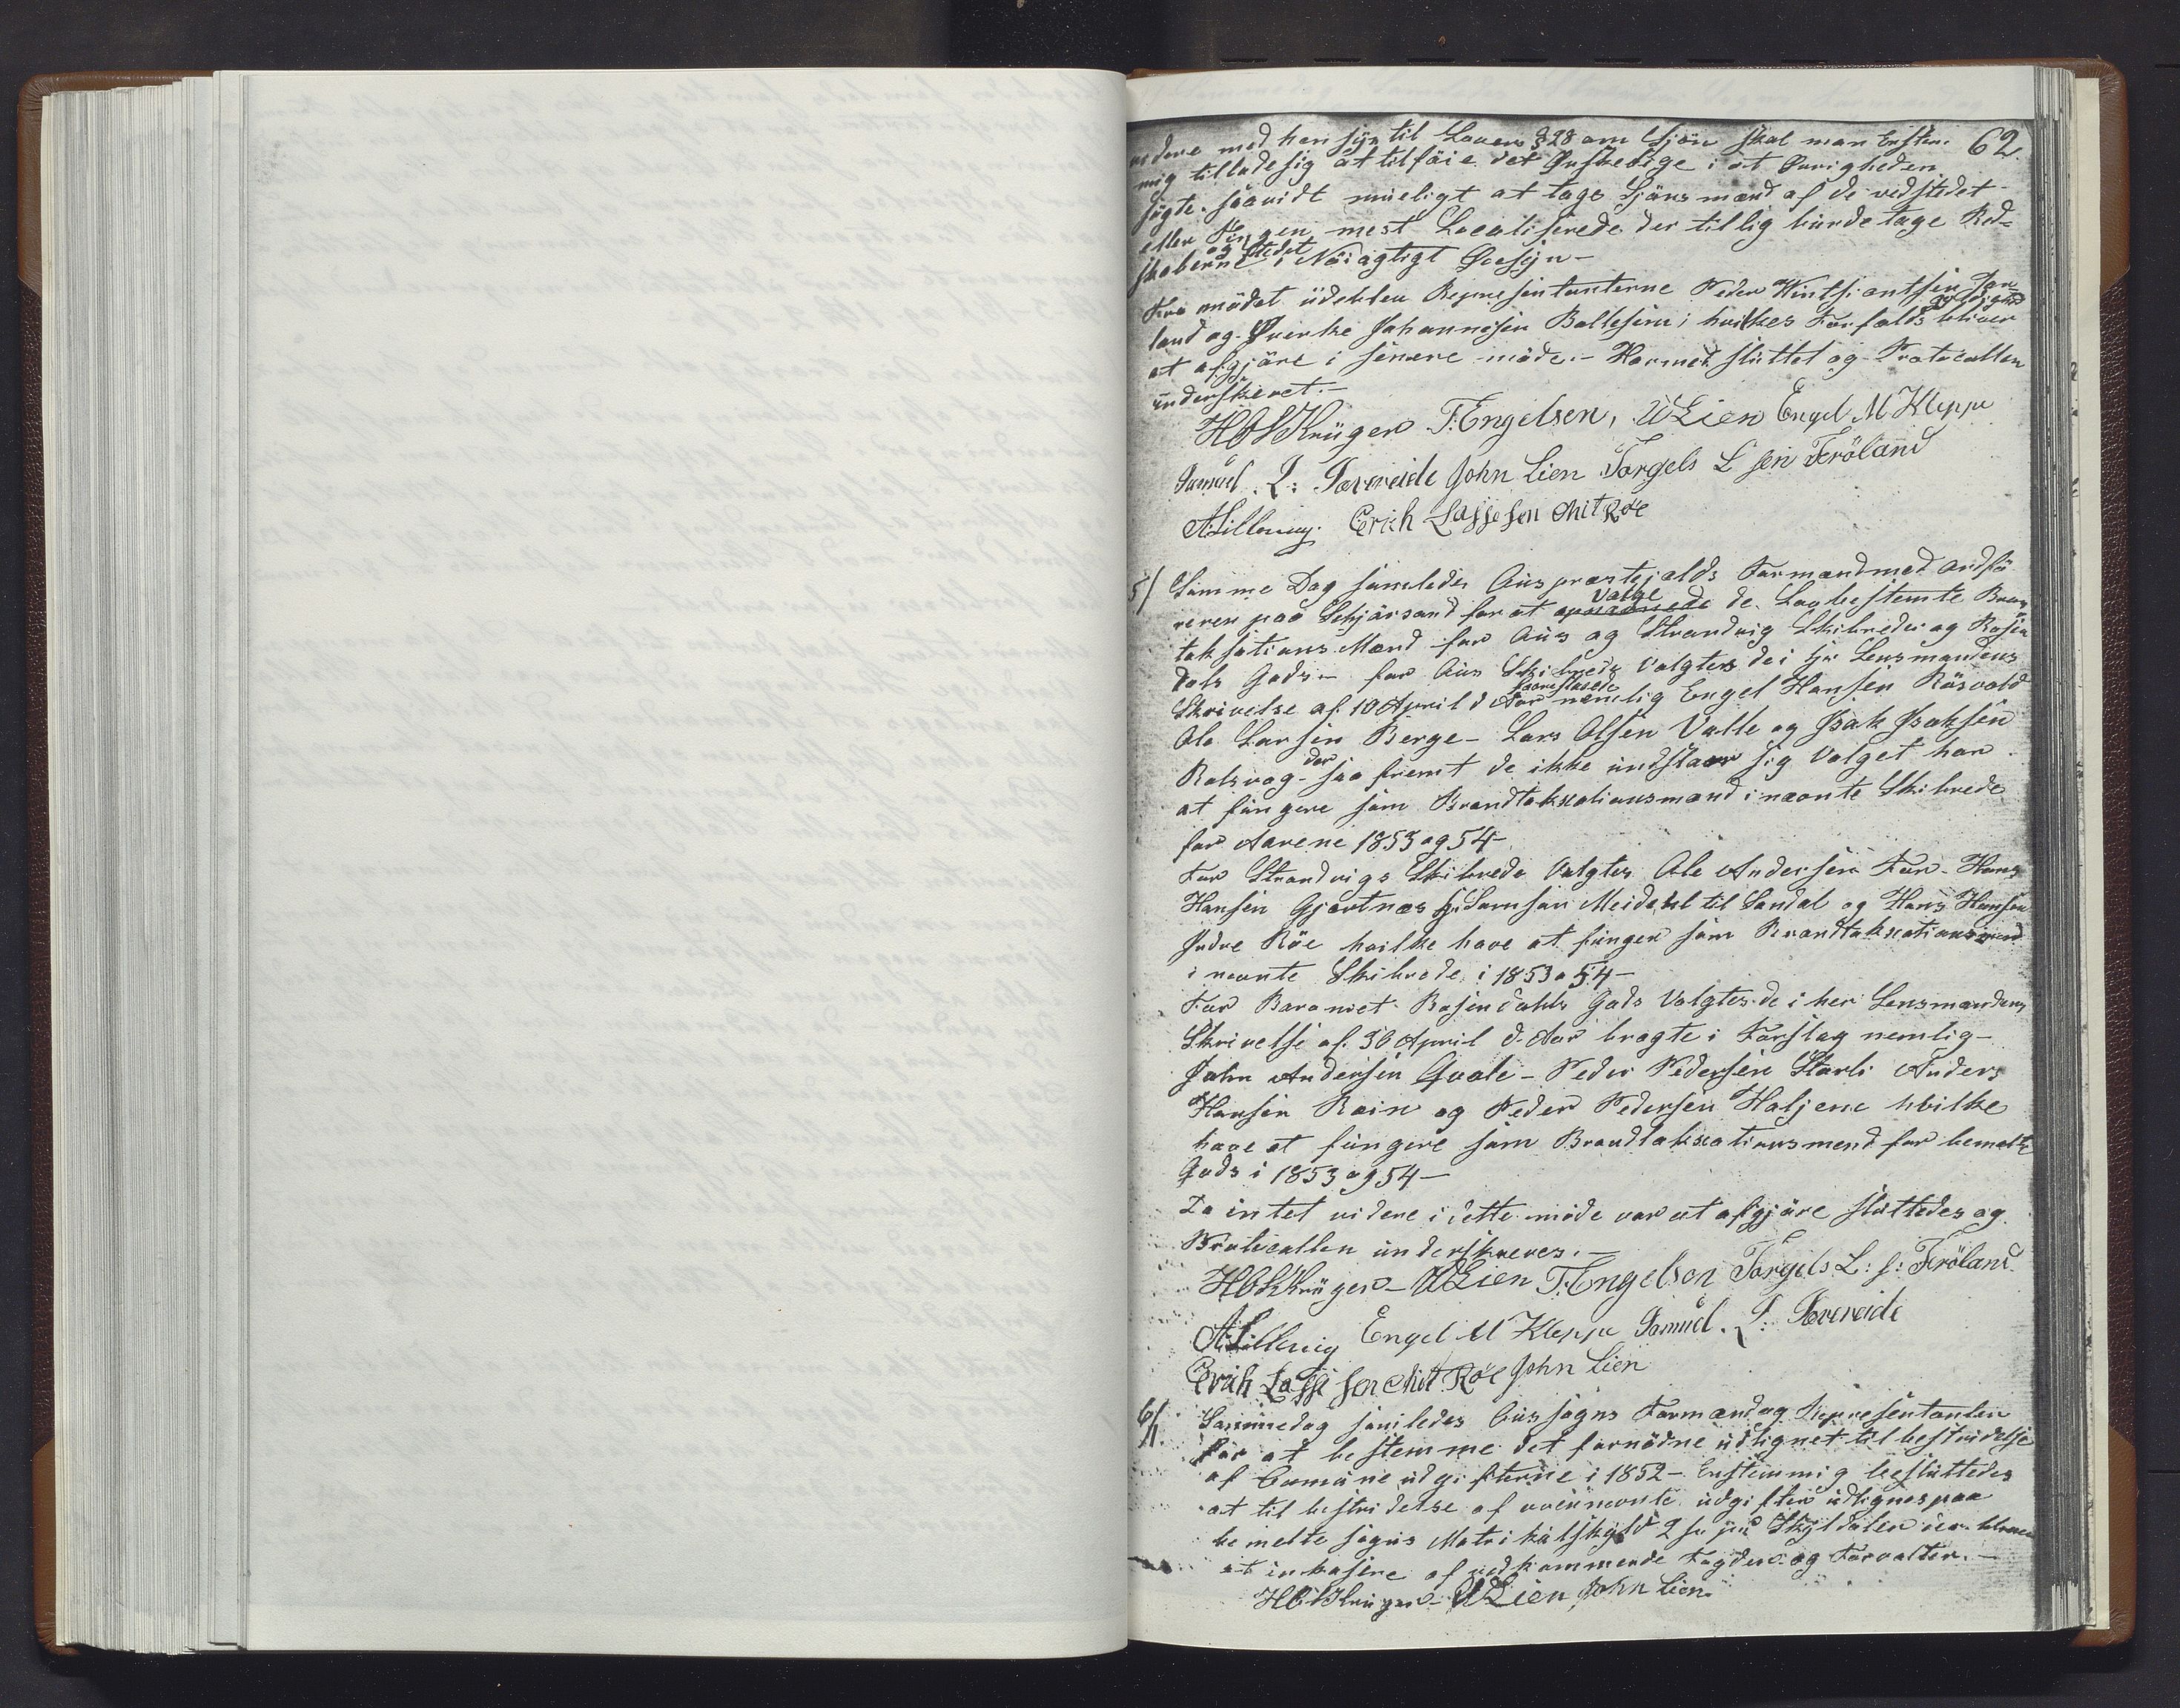 62.
videre med hensyn til Lovens § 28 om Skjön skal man Enstem-
mig tillade sig at tilföie det Ønskelige i at Øvrigheden
sögte saavidt mueligt at tage Skjönsmænd af de ved stedet
eller Tingen mest Localiserede der tillig burde tage Red-
skaberne og Stedet i Nöiagtigt Øiesyn-
Fra mödet udebleve Representanterne Peder
land og Johannesen hvilkes Forfald bliver
at afgjöre i senere möde.- Hermed sluttet og Protocallen
underskrevet.-
HGKrüger T:Engelsen, WLien Engel M Kleppe
Samuel. L: Sævereide John Lien Torgels L sen Fröland
ALilleuig. Erich Lassesen Röe
5/ Samme Dag samledes Ous præstegjælds Formænd med Ordfö
reren paa Schjörsand for at Valge de Lovbestemte Bran
taksations Mænd for Ous og Strandvig Skibreder og Rosen
dals Gods- for Ous Skibrede Valgtes de i hr Lensmandens
Skrivelse af 10 April d Aar foreslaaede nemlig Engel Hansen Rösvold
Ole Larsen Berge- Lars Olsen Valle og Isak Isaksen
Bolsvog- der saa fremt de ikke undslaar sig Valget har
at fungere som Brandtaksationsmænd i nævnte Skibrede
for Aarene 1853 og 54-
For Strandvigs Skibrede Valgtes Ole Andersen Hans
Hansen Gjertnæs til Sandal og Hans Hansen
Indre Röe hvilke have at funger som Brandtaksationsmænd
i nævnte Skibrede i 1853 o 54-
For Baroniet Rosendahls Gods Valgtes de i her Lensmandens
Skrivelse af 30 April d. Aar bragte i Forslag nemlig-
John Andersen Qvale- Peder Pedersen Anders
Hansen og Peder Pedersen hvilke
have at fungere som Brandtaksationsmend for bemelte
Gods i 1853 og 54-
Da intet videre i dette möde var at afgjöre sluttedes og
Protocallen underskreves.-
HGKrüger- WLien T:Engelsen Torgels L: s: Fröland
ALilleuig Engel M Kleppe Samuel. L: Sævereide
Erich Lassesen Röe John Lien
6/. Sammedag samledes Ous sogns Formænd og Representanter
for at bestemme det fornödne udlignet til bestridelse
af Comuneudgifterne i 1852- Enstemmig besluttedes
at til bestridelse af ovennevnte udgifter udlignes paa
bemelte sogns Matrikulskyld 2 s pr Skyldaler
at inkasere af vedkommende Fogder og Forvalter.-
HGKrüger- WLien John Lien